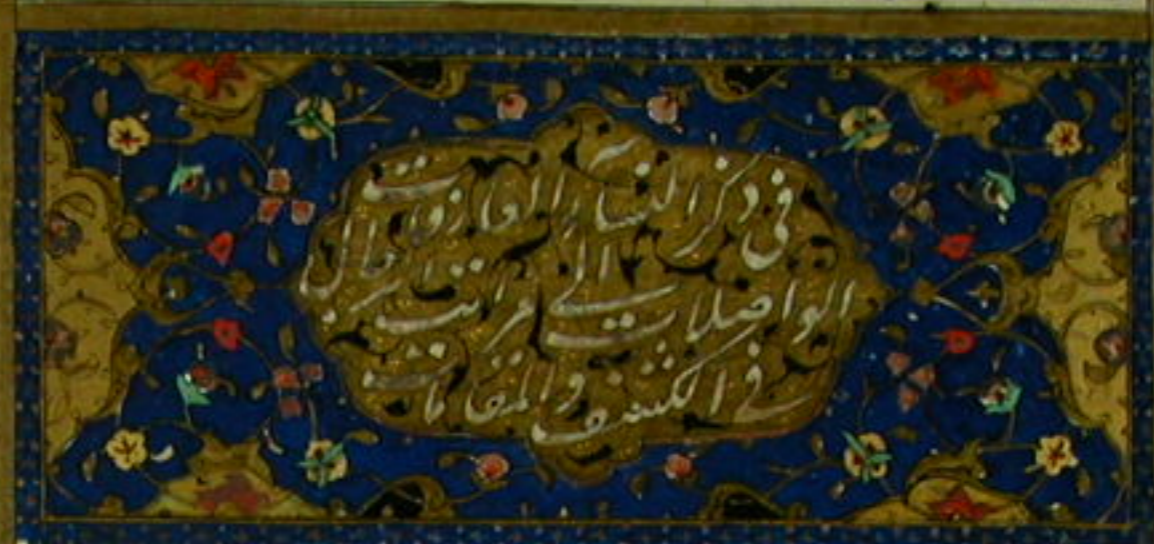 فی ذکر النساء العارفات
الواصلات الی مراتب الرجال
فی الکشف والمقامات